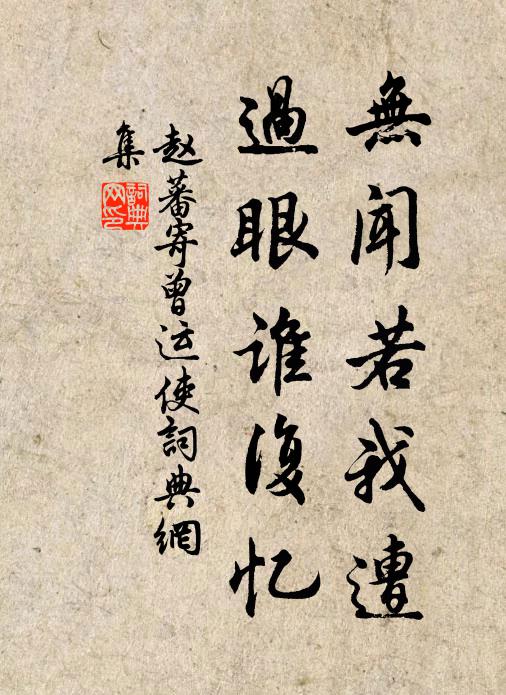 無聞若我遭
過眼誰復忆
赵蕃寄曾运使詞典網
集
詞典網印